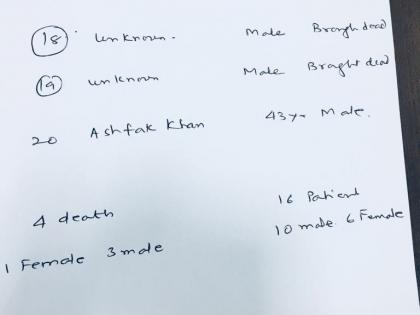 18 unknown. Male Brough dead
19 unknown Male Braght dead
20 Ashfak Khan 43 yr Male.
4 death 16 Patient
1 Female 3 male 10 male 6 Female